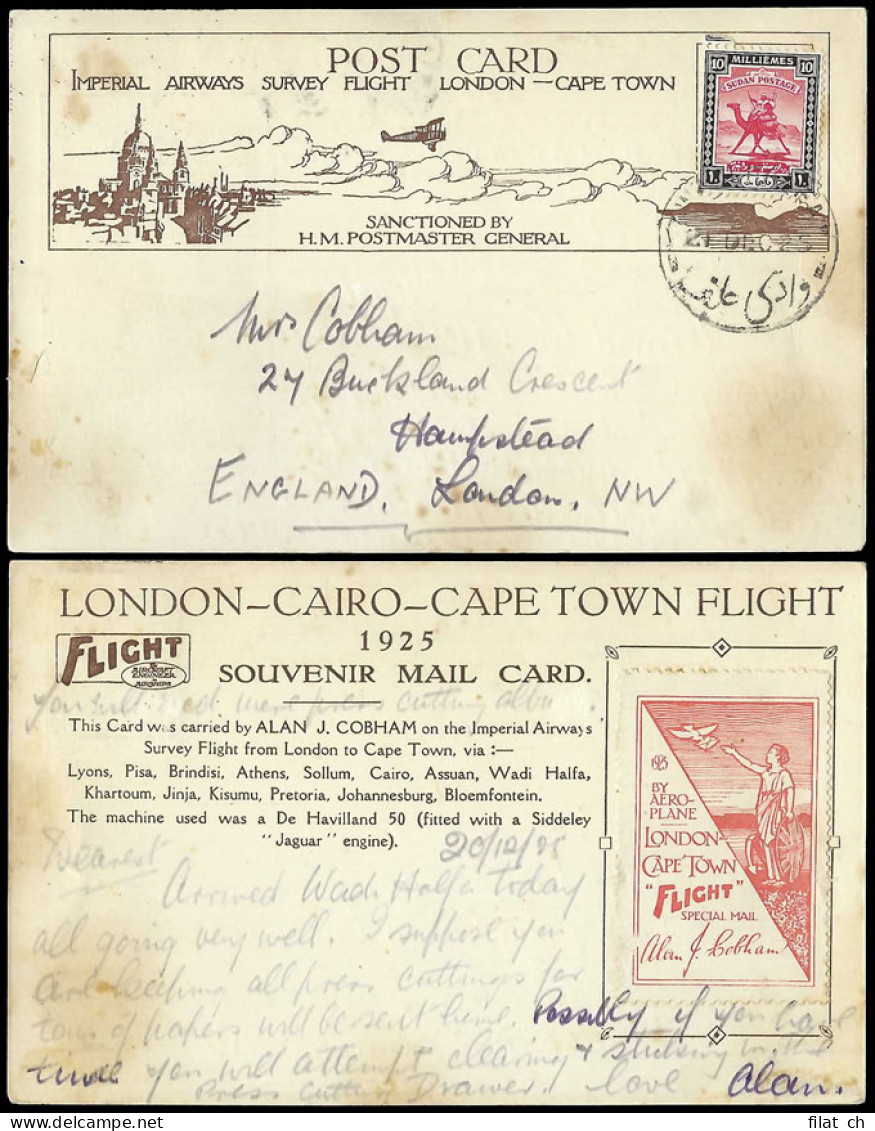 POST CARD
IMPERIAL AIRWAYS SURVEY FLIGHT LONDON—CAPE TOWN
10 MILLIÈMES 10
SUDAN POSTAGE
SANCTIONED BY
H.M. POSTMASTER GENERAL
21 DEC 25
وادي حلفا
Mrs Cobham
27 Buckland Crescent
Hampstead
ENGLAND, London, NW
LONDON—CAIRO—CAPE TOWN FLIGHT
1925
FLIGHT
AIRCRAFT
ENGINEER
& AIRSHIPS
SOUVENIR MAIL CARD.
You will need more press cutting
This Card was carried by ALAN J. COBHAM on the Imperial Airways
Survey Flight from London to Cape Town, via :—
Lyons, Pisa, Brindisi, Athens, Sollum, Cairo, Assuan, Wadi Halfa,
Khartoum, Jinja, Kisumu, Pretoria, Johannesburg, Bloemfontein.
The machine used was a De Havilland 50 (fitted with a Siddeley
"Jaguar" engine).
20/12/25
1925
BY
AERO-
PLANE
LONDON-
CAPE TOWN
"FLIGHT"
SPECIAL MAIL
Alan J. Cobham
Dearest
Arrived Wadi Halfa today
all going very well. I suppose you
are keeping all press cuttings for
tons of papers will be sent home. Possibly if you have
time you will attempt clearing & sticking in the
Press Cutting Drawer. love Alan.
filat ch